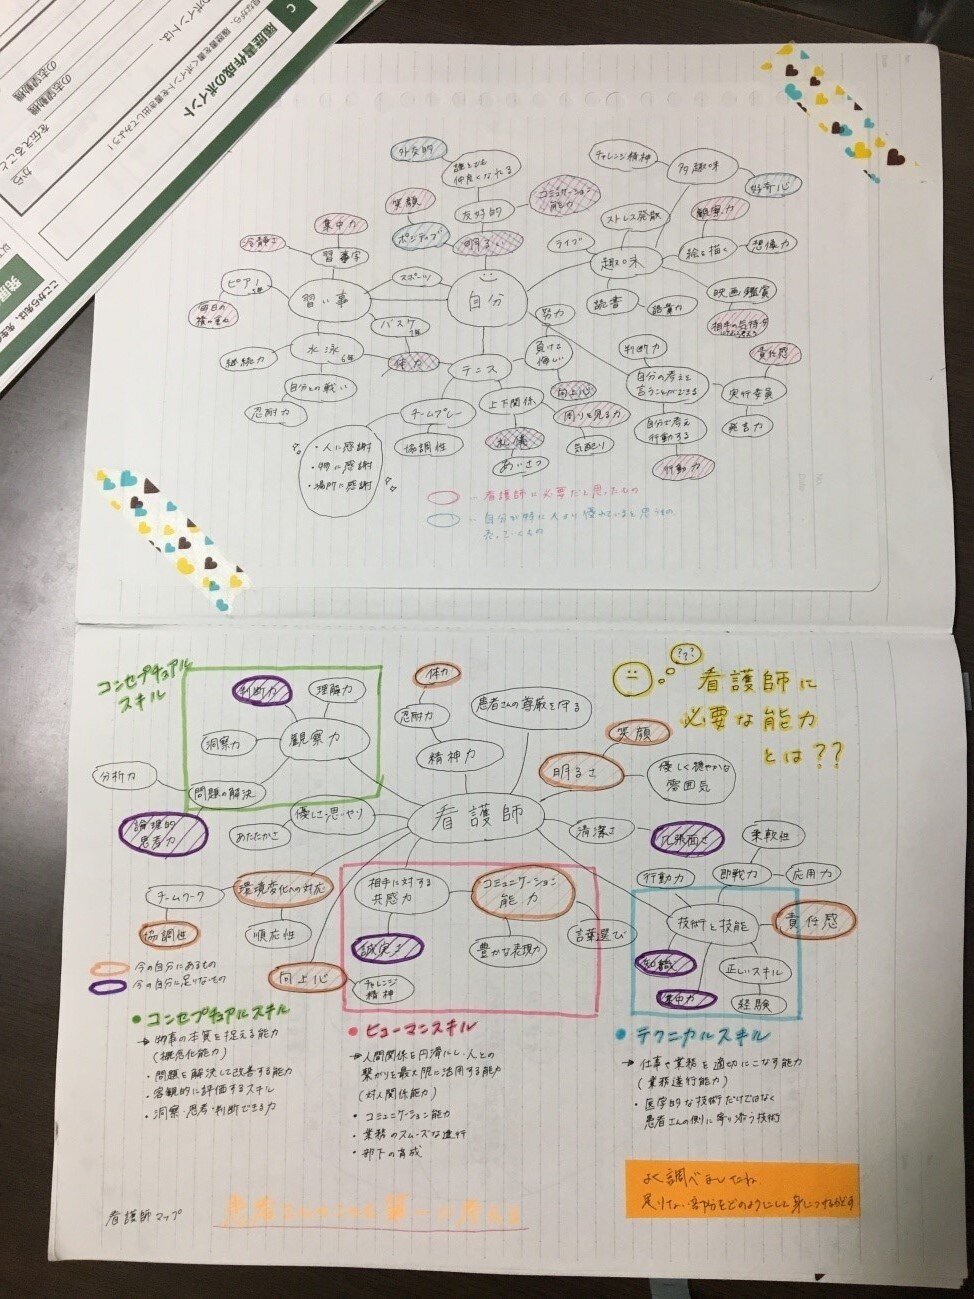 C
履歴書作成のポイント
見ながら、履歴書を書くポイントを書き出してみよう！
のポイントは、
の志望動機
の志望動機
を伝えること
から
外交的
誰とでも
仲良くなれる
笑顔
友好的
コミュニケーション
能力
ポジティブ
明るい
チャレンジ精神
多趣味
好奇心
ストレス発散
観察力
ライブ
趣味
絵を描く
想像力
読書
読書力
映画鑑賞
集中力
冷静さ
習字
ピアノ
習い事
スポーツ
自分
毎日の
積み重ね
バスケ
1年
継続力
水泳
6年
体力
テニス
自分との戦い
忍耐力
チームプレー
協調性
・人に感謝
・物に感謝
・場所に感謝
努力
負けて
悔しい
上下関係
向上心
周りを見る力
気配り
礼儀
あいさつ
判断力
自分の考えを
言うことができる
自分で考え
行動する
行動力
責任感
実行委員
発言力
‥看護師に必要だと思ったもの
‥自分が特に人より優れていると思うもの
コンセプチュアル
スキル
判断力
理解力
洞察力
観察力
分析力
問題の解決
論理的
思考力
体力
忍耐力
精神力
患者さんの尊厳を守る
???
看護師に
必要な能力
とは??
笑顔
明るさ
優しく穏やかな
雰囲気
看護師
優しさ思いやり
あたたかさ
清潔さ
几帳面さ
柔軟性
行動力
即戦力
応用力
技術と技能
責任感
知識
正しいスキル
集中力
経験
チームワーク
環境変化への対応
協調性
順応性
向上心
チャレンジ
精神
相手に対する
共感力
コミュニケーション
能力
誠実さ
豊かな表現力
言葉選び
今の自分にあるもの
今の自分に足りないもの
●コンセプチュアルスキル
→物事の本質を捉える能力
(概念化能力)
・問題を解決して改善する能力
・客観的に評価するスキル
・洞察・思考・判断できる力
●ヒューマンスキル
→人間関係を円滑にし、人との
繋がりを最大限に活用する能力
(対人関係能力)
・コミュニケーション能力
・業務のスムーズな進行
・部下の育成
●テクニカルスキル
→仕事や業務を適切にこなす能力
(業務遂行能力)
・医学的な技術だけではなく
患者さんの側に寄り添う技術
よく調べましたね
足りない部分をどのようにして身につけるかです
看護師マップ
患者さんのことを第一に考える